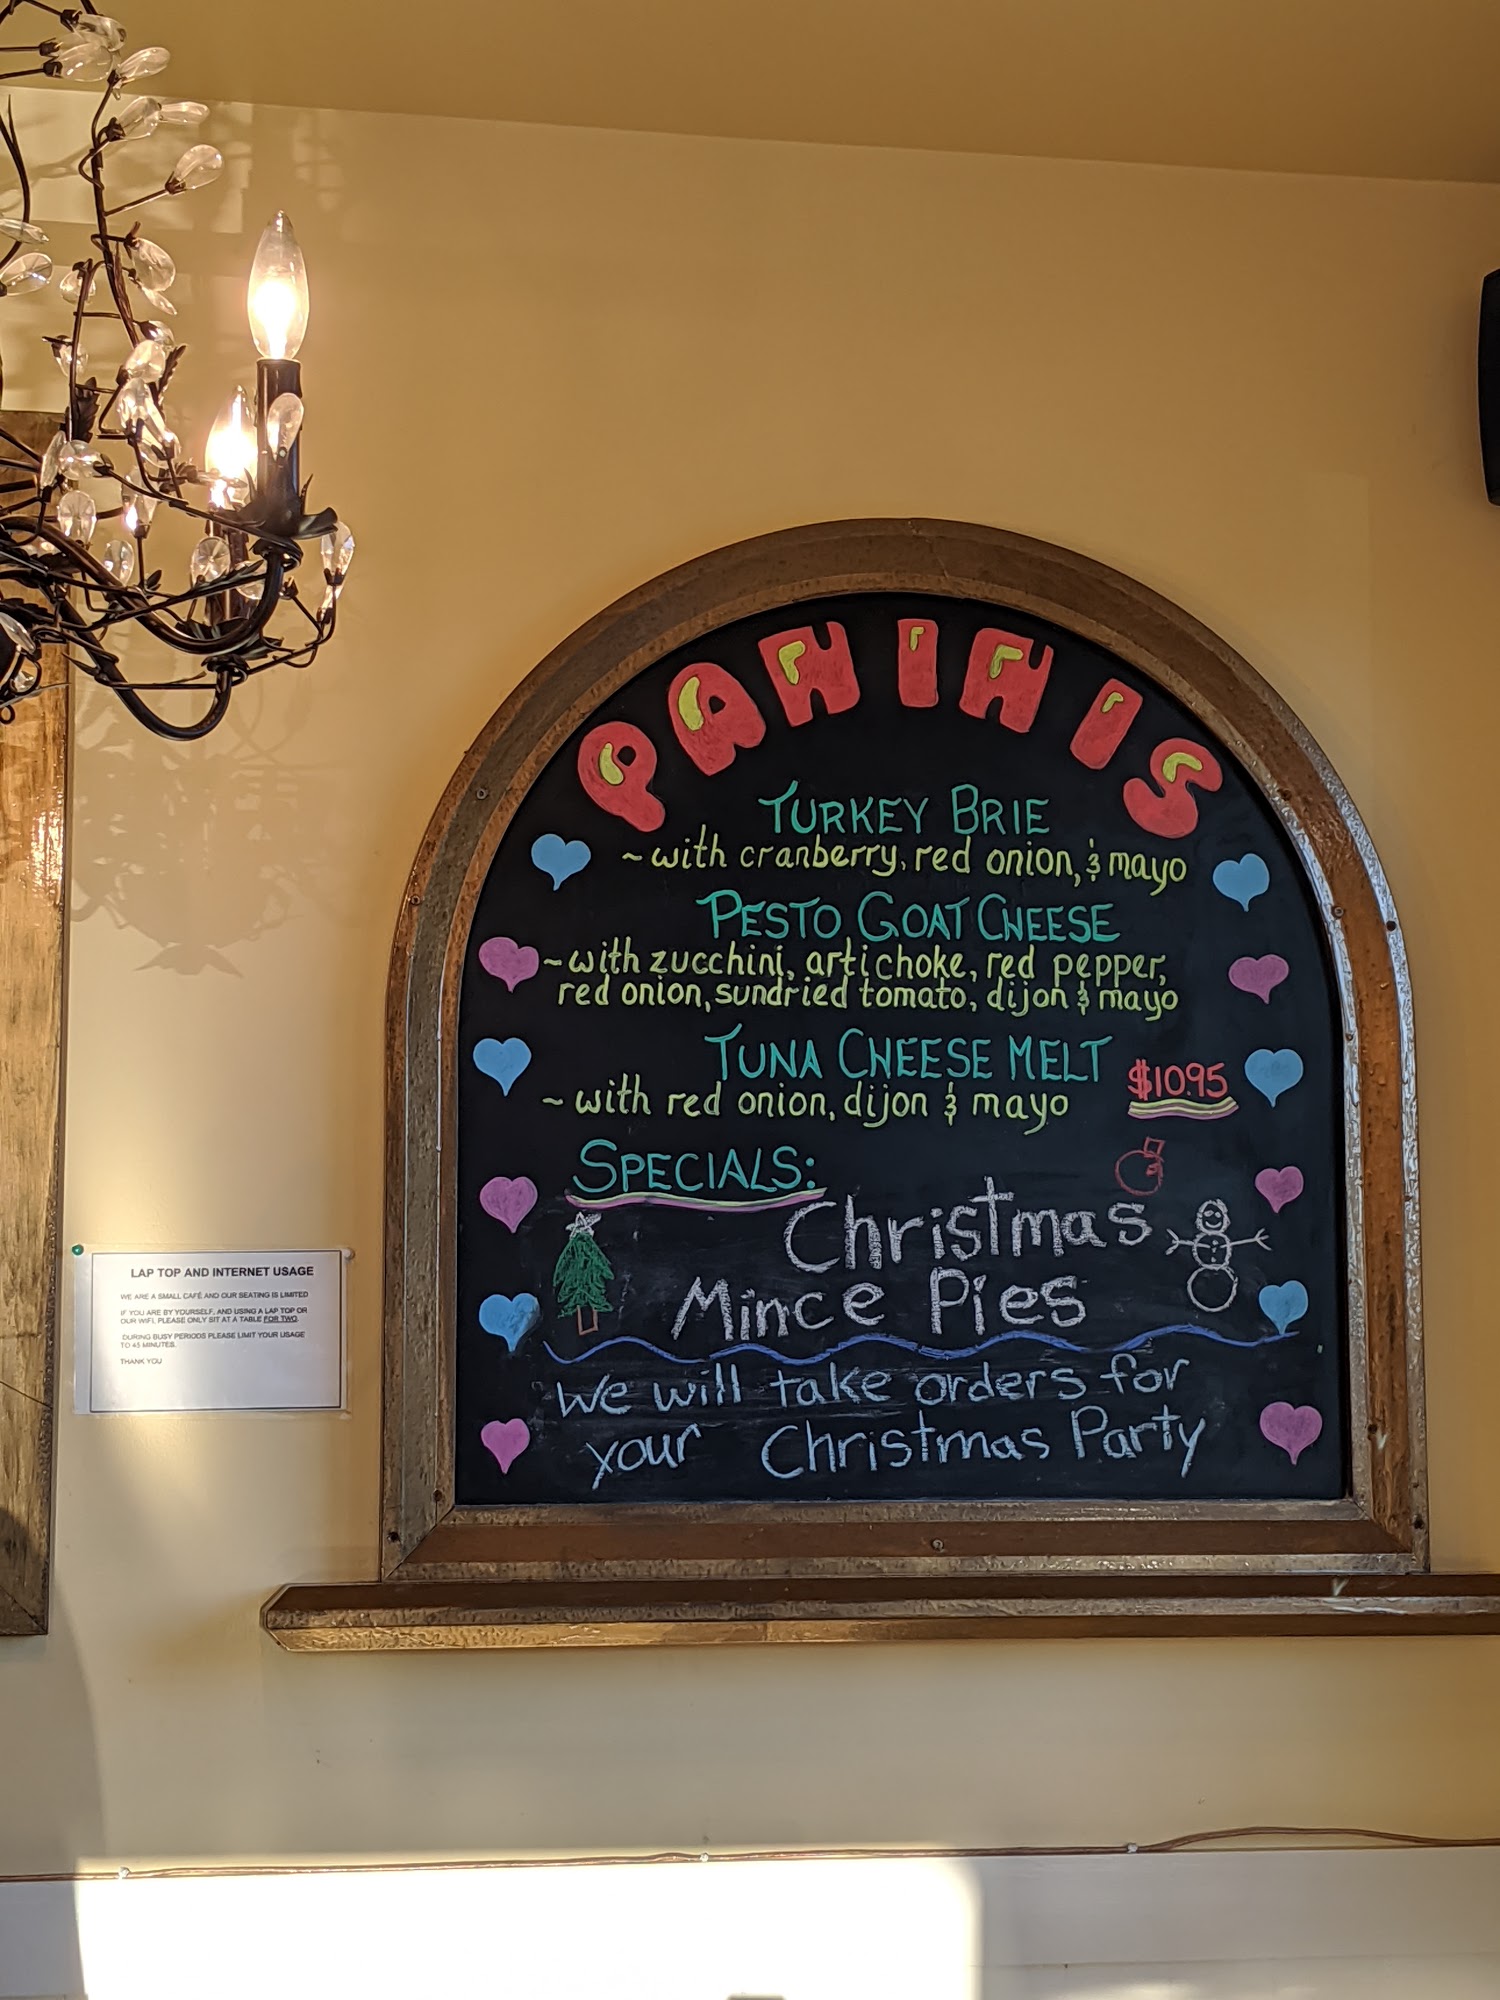 PANINIS
TURKEY BRIE
~with cranberry, red onion, & mayo
PESTO GOAT CHEESE
~with zucchini, artichoke, red pepper,
red onion, sundried tomato, dijon & mayo
TUNA CHEESE MELT
$10.95
~with red onion, dijon & mayo
SPECIALS:
Christmas
Mince Pies
We will take orders for
your Christmas Party
LAP TOP AND INTERNET USAGE
WE ARE A SMALL CAFÉ AND OUR SEATING IS LIMITED
IF YOU ARE BY YOURSELF, AND USING A LAP TOP OR
OUR WIFI, PLEASE ONLY SIT AT A TABLE FOR TWO.
DURING BUSY PERIODS PLEASE LIMIT YOUR USAGE
TO 45 MINUTES.
THANK YOU